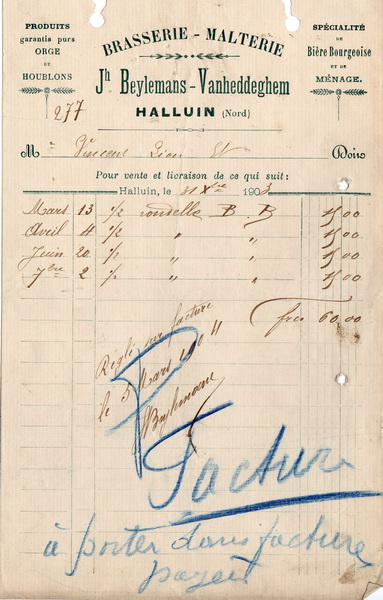 PRODUITS
garantis purs
ORGE
ET
HOUBLONS
BRASSERIE - MALTERIE
Jh Beylemans-Vanheddeghem
HALLUIN (Nord)
SPÉCIALITÉ
DE
Bière Bourgeoise
ET DE
MÉNAGE.
277
M Vincent Doit
Pour vente et livraison de ce qui suit:
Halluin, le 31 Xbre 1903
Mars 13 1/2 rondelle B. B 15,00
Avril 4 1/2 " " 15,00
Juin 20 1/2 " " 15,00
7bre 2 1/2 " " 15,00
frcs 60,00
Réglé sur facture
le 5 Mars 1904
Beylemans
Facture
à porter dans facture
payée